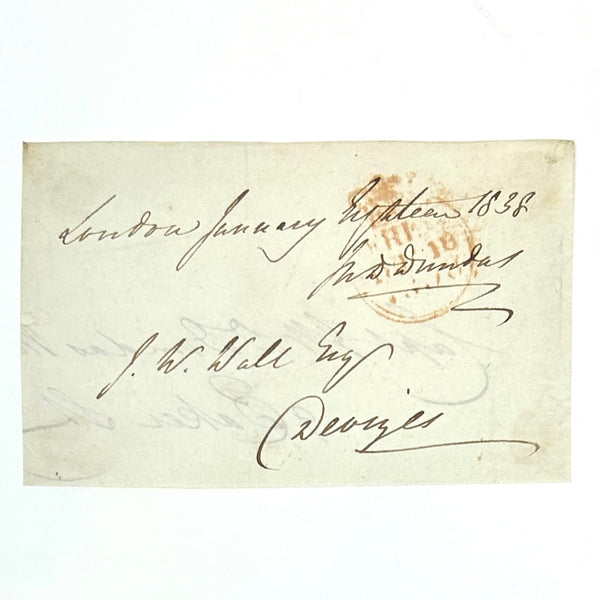 London January Eighteen 1838
FREE
18
1838
J W D Dundas
J. W. Wall Esq
Devizes